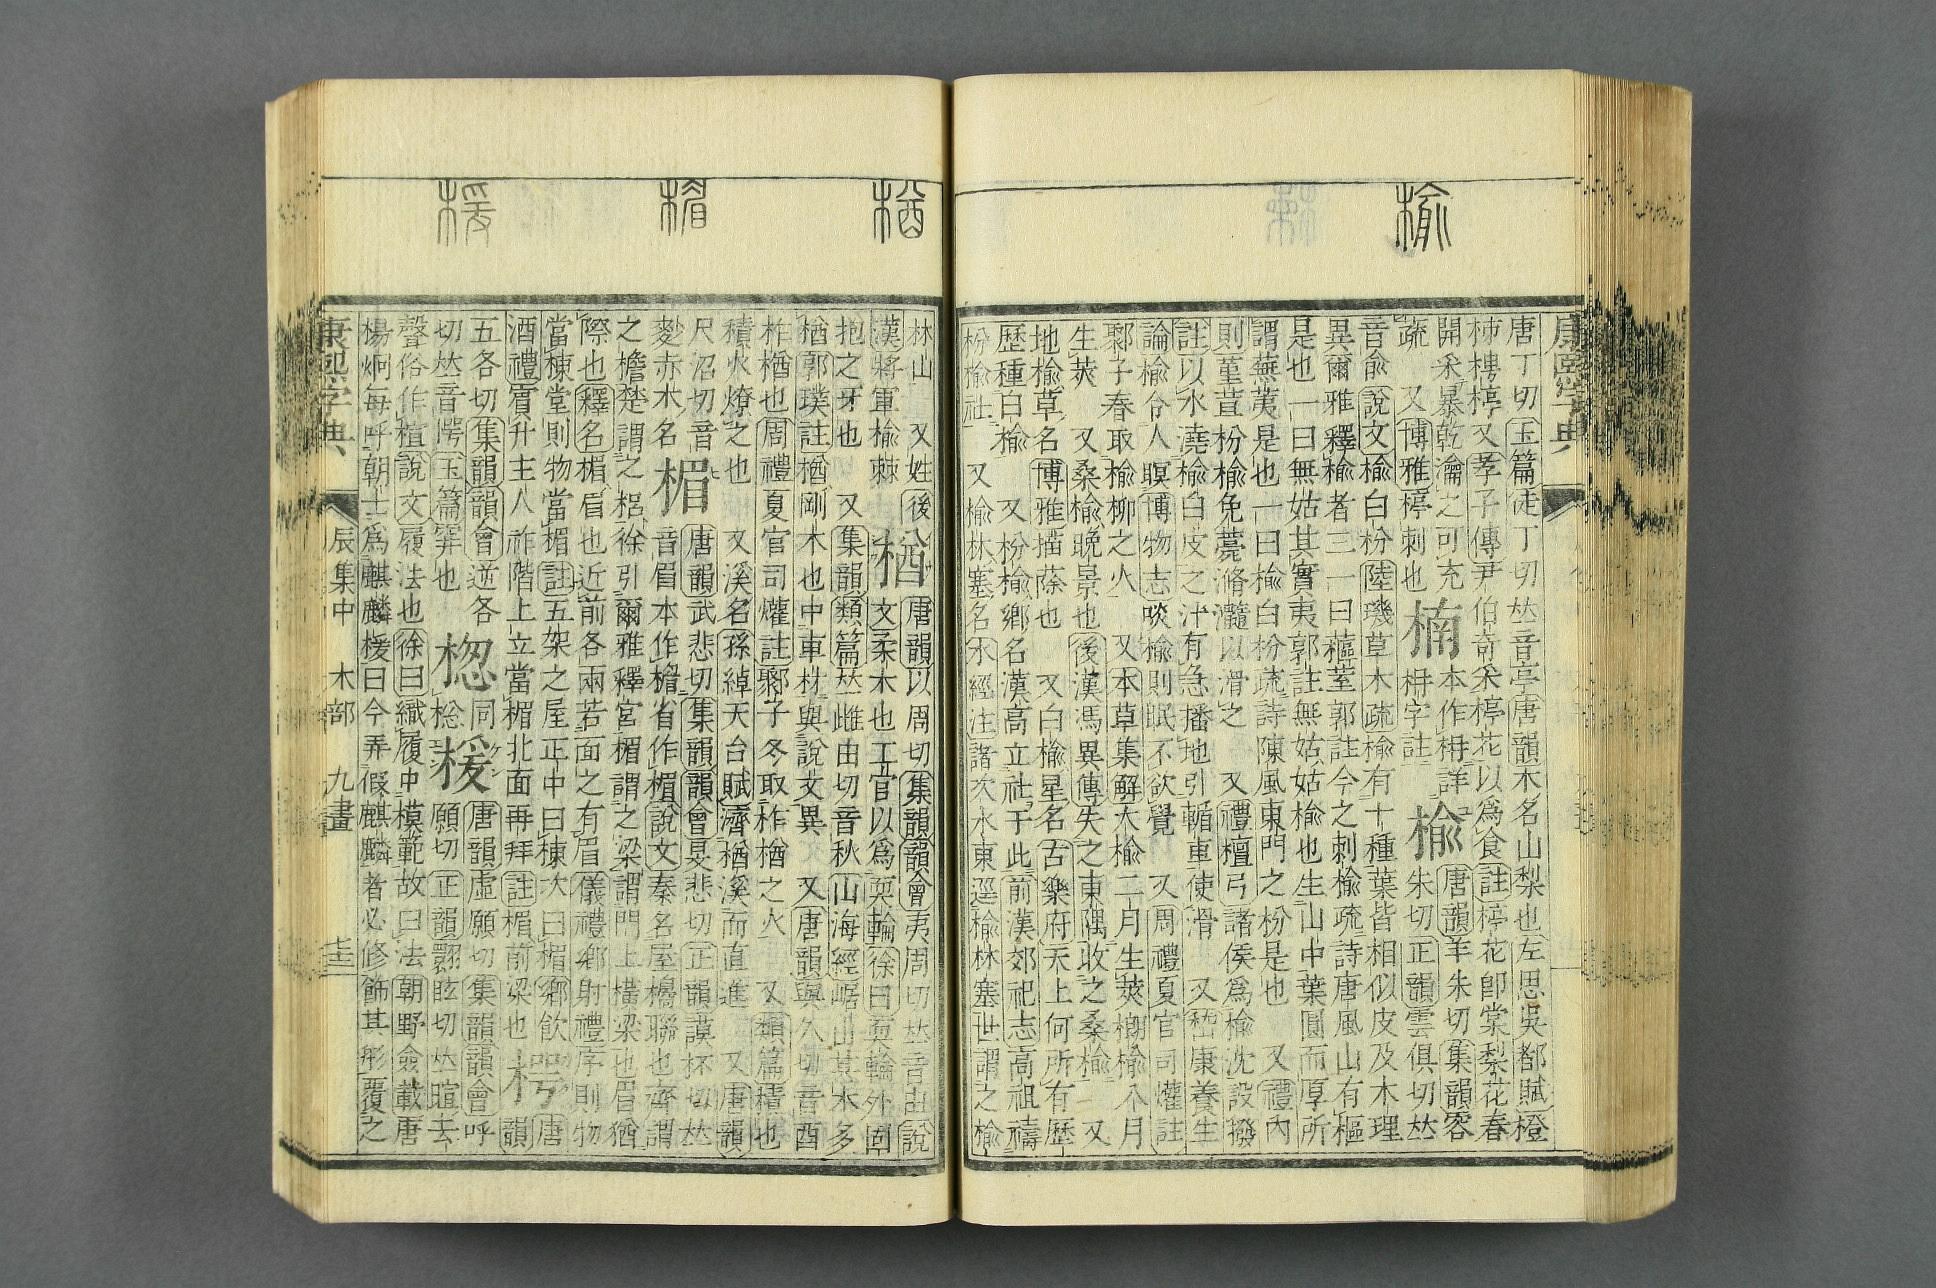 榆
康熙字典
唐丁切玉篇定丁切𠀤音亭唐韻木名山梨也左思吳都賦橙
柹樗楟又孝子傳尹伯奇采楟花以爲食註楟花卽棠梨花春
開采暴乾瀹之可充
疏 又博雅楟刺也
楠
本作枏詳
枏字註
榆
唐韻羊朱切集韻容
朱切正韻雲俱切𠀤
音俞說文榆白枌陸璣草木疏榆有十種葉皆相似皮及木理
異爾雅釋榆者三一曰藲荎郭註今之刺榆疏詩唐風山有樞
是也一曰無姑其實夷郭註無姑姑榆也生山中葉圓而厚所
謂蕪荑是也一曰榆白枌疏詩陳風東門之枌是也 又禮內
則菫荁枌榆免薧滫瀡以滑之 又禮檀弓諸侯爲榆沈設撥
註以水澆榆白皮之汁有急播地引輴車使滑 又嵆康養生
論榆令人瞑博物志啖榆則眠不欲覺 又周禮夏官司爟註
鄹子春取榆柳之火 又本草集解大榆二月生莢榔榆八月
生莢 又桑榆晚景也後漢馮異傳失之東隅收之桑榆 又
地榆草名博雅菗蒢也 又白榆星名古樂府天上何所有歷
歷種白榆 又枌榆鄉名漢高立社于此前漢郊祀志高祖禱
枌榆社 又榆林塞名水經注諸次水東逕榆林塞世謂之榆
楢
楣
楥
林山 又姓後
漢將軍榆棘
楢
唐韻以周切集韻韻會夷周切𠀤音由說
文柔木也工官以爲耎輪徐曰耎輪外固
抱之牙也 又集韻類篇𠀤雌由切音秋山海經崌山其木多
楢郭璞註楢剛木也中車材與說文異 又唐韻與久切音酉
柞楢也周禮夏官司爟註鄹子冬取柞楢之火 又類篇積也
積火燎之也 又溪名孫綽天台賦濟楢溪而直進 又唐韻
尺沼切音
麨赤木名
楣
唐韻武悲切集韻韻會旻悲切正韻謨杯切𠀤
音眉本作楣省作楣說文秦名屋櫋聯也齊謂
之檐楚謂之梠徐引爾雅釋宮楣謂之梁謂門上橫梁也眉猶
際也釋名楣眉也近前各兩若面之有眉儀禮鄉射禮序則物
當棟堂則物當楣註五架之屋正中曰棟次曰楣鄉飮
酒禮賓升主人阼階上立當楣北面再拜註楣前梁也
㮙
唐
韻
五各切集韻韻會逆各
切𠀤音愕玉篇穽也
楤
同
棇
楥
唐韻虛願切集韻韻會呼
願切正韻翾眩切𠀤暄去
聲俗作楦說文履法也徐曰織履中模範故曰法朝野僉載唐
楊炯每呼朝士爲麒麟楥曰今弄假麒麟者必修飾其形覆之
康熙字典 辰集中 木部 九畫